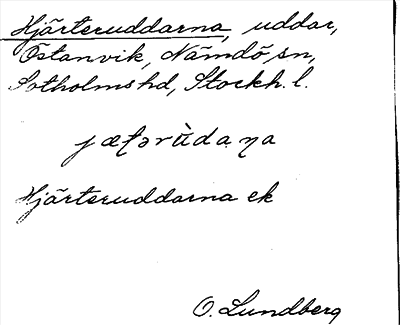 Hjärteruddarna, uddar,
Östanvik, Nämdö sn,
Sotholms hd, Stockh. l.
jæʈərùdaɳa
Hjärteruddarna ek
O. Lundberg